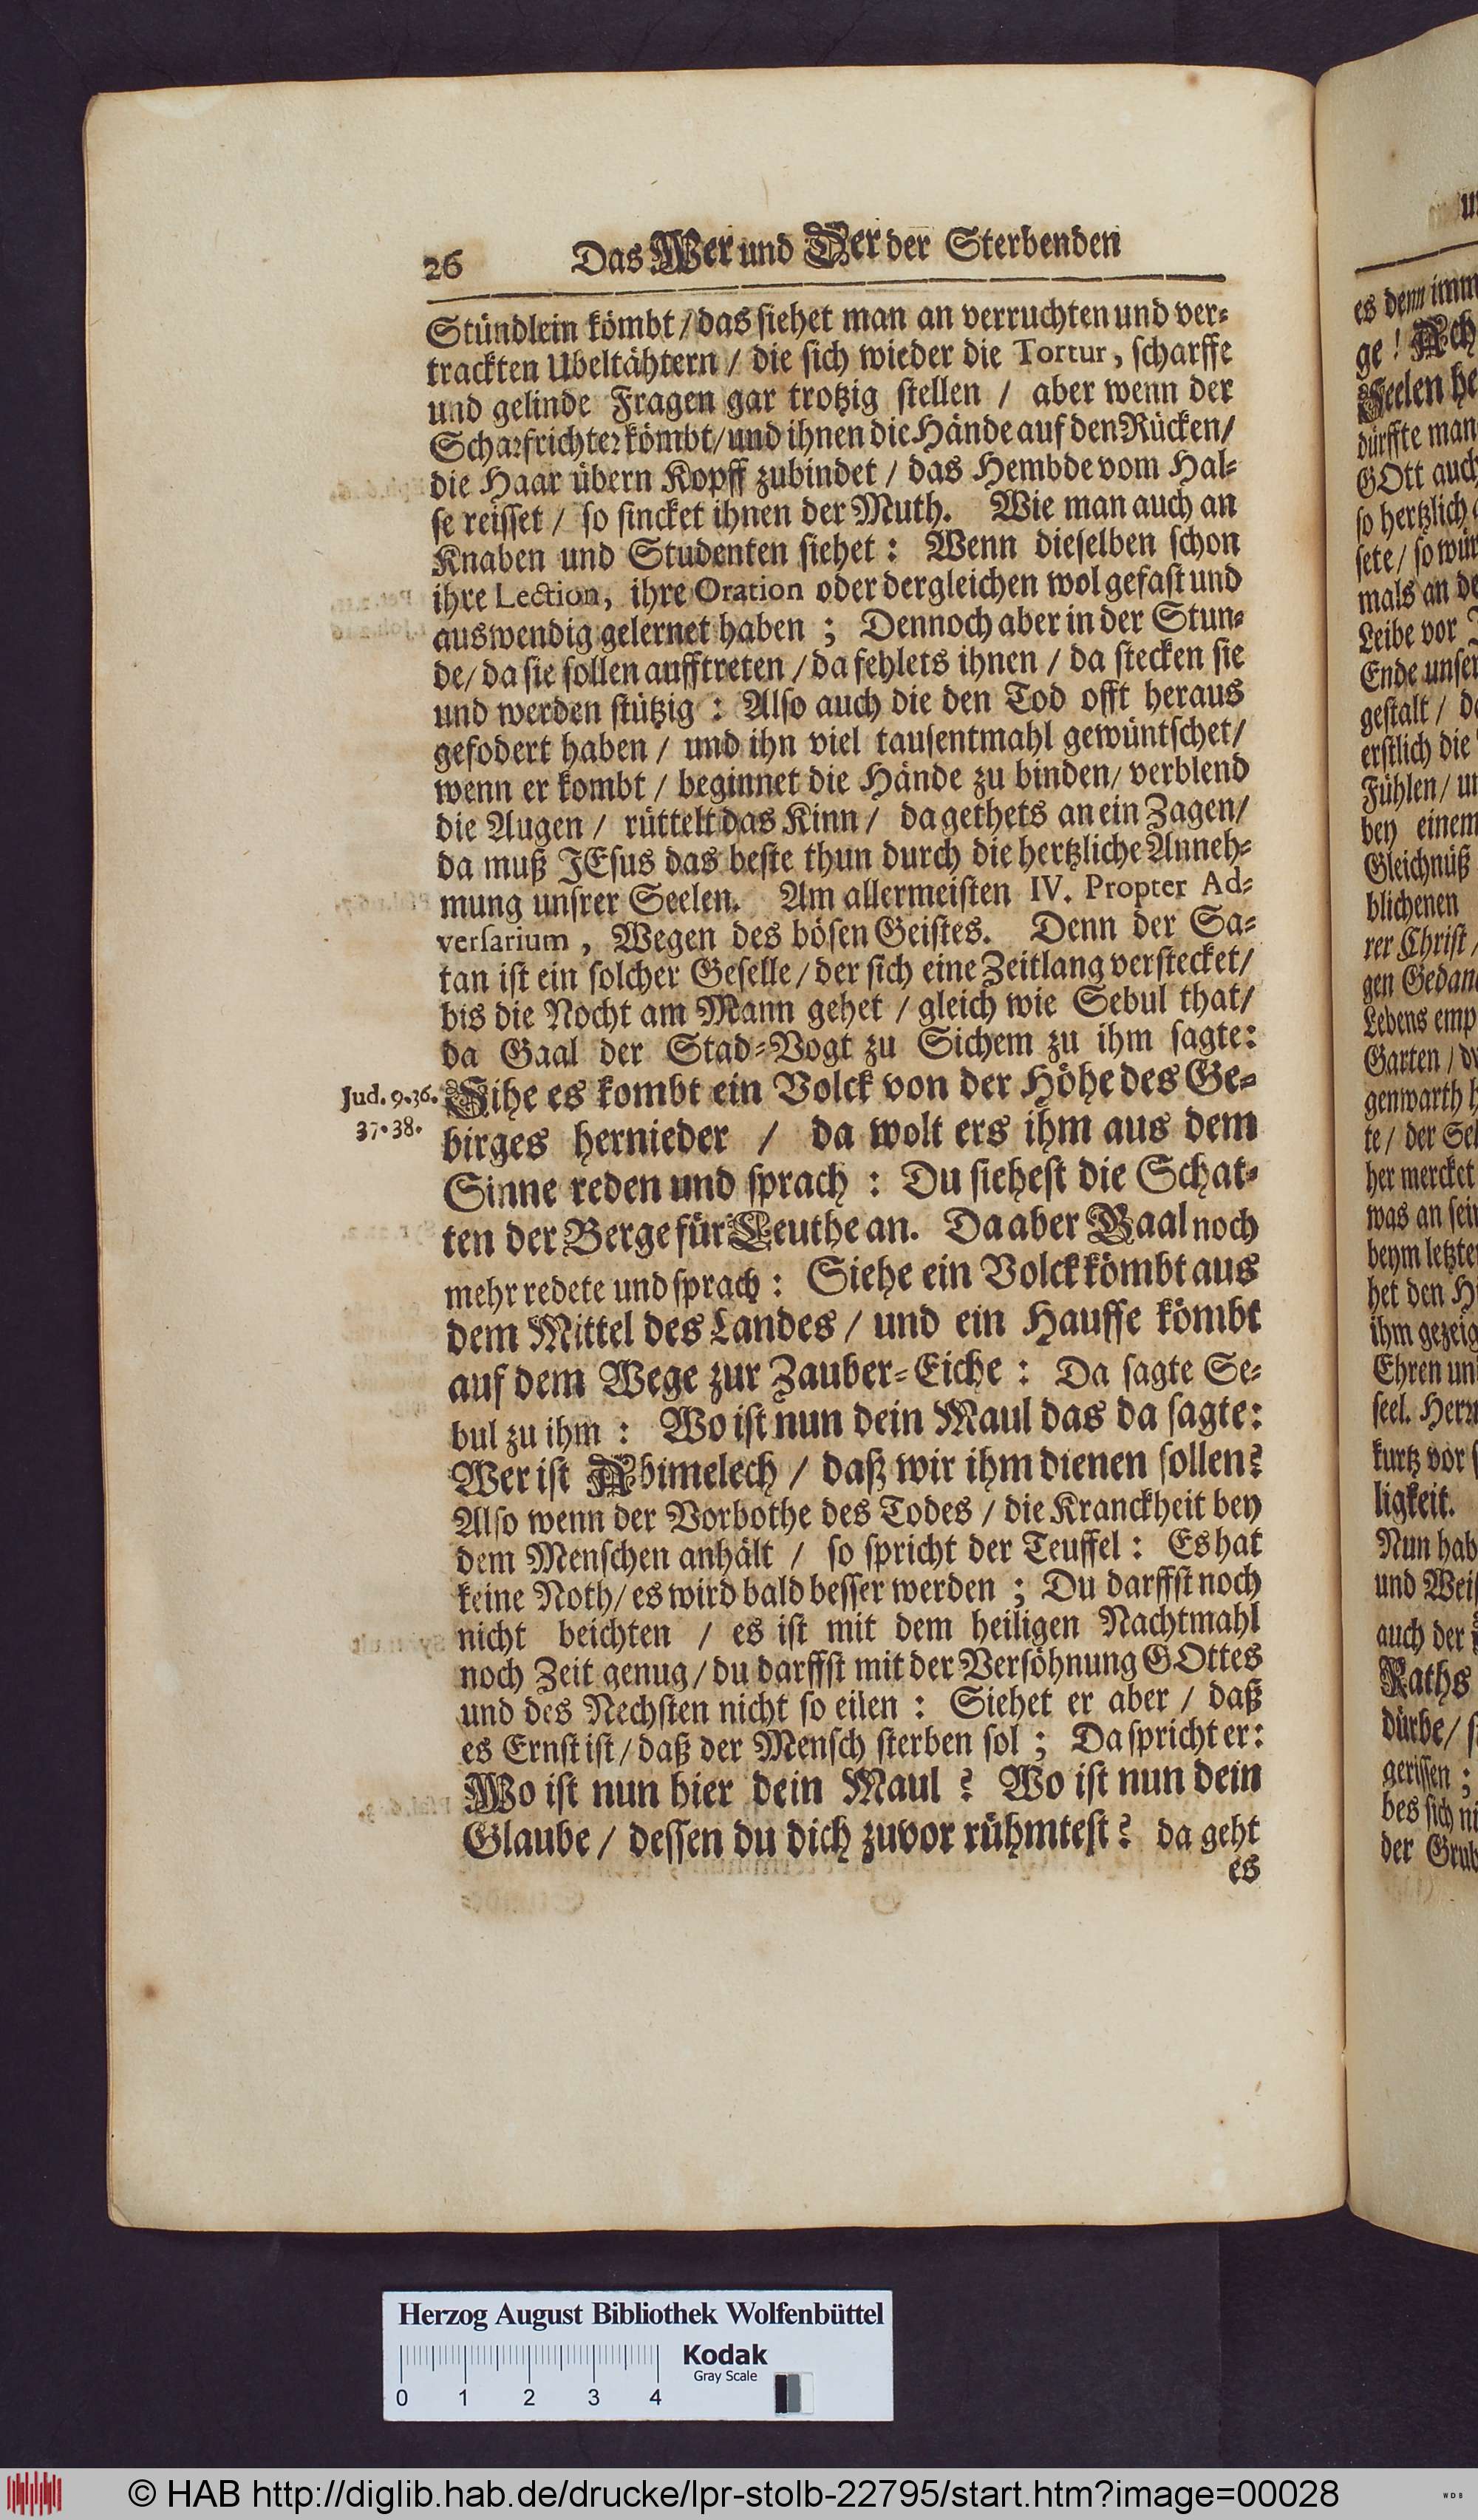 26 Das Wer und Der der Sterbenden
Stündlein kömbt / das siehet man an verruchten und ver-
trackten Ubeltähtern / die sich wieder die Tortur, scharffe
und gelinde Fragen gar trotzig stellen / aber wenn der
Scharfrichter kömbt / und ihnen die Hände auf den Rücken /
die Haar übern Kopff zubindet / das Hembde vom Hal-
se reisset / so sincket ihnen der Muth. Wie man auch an
Knaben und Studenten siehet : Wenn dieselben schon
ihre Lection, ihre Oration oder dergleichen wol gefast und
auswendig gelernet haben ; Dennoch aber in der Stun-
de / da sie sollen aufftreten / da fehlets ihnen / da stecken sie
und werden stützig : Also auch die den Tod offt heraus
gefodert haben / und ihn viel tausentmahl gewüntschet /
wenn er kombt / beginnet die Hände zu binden / verblend
die Augen / rüttelt das Kinn / da gethets an ein Zagen /
da muß JEsus das beste thun durch die hertzliche Anneh-
mung unsrer Seelen. Am allermeisten IV. Propter Ad-
versarium, Wegen des bösen Geistes. Denn der Sa-
tan ist ein solcher Geselle / der sich eine Zeitlang verstecket /
bis die Nocht am Mann gehet / gleich wie Sebul that /
da Gaal der Stad-Vogt zu Sichem zu ihm sagte:
Jud. 9. 36. Sihe es kombt ein Volck von der Höhe des Ge-
37. 38. birges hernieder / da wolt ers ihm aus dem
Sinne reden und sprach : Du siehest die Schat-
ten der Berge für Leuthe an. Da aber Gaal noch
mehr redete und sprach : Siehe ein Volck kömbt aus
dem Mittel des Landes / und ein Hauffe kömbt
auf dem Wege zur Zauber-Eiche : Da sagte Se-
bul zu ihm : Wo ist nun dein Maul das da sagte:
Wer ist Abimelech / daß wir ihm dienen sollen?
Also wenn der Vorbothe des Todes / die Kranckheit bey
dem Menschen anhält / so spricht der Teuffel : Es hat
keine Noth / es wird bald besser werden ; Du darffst noch
nicht beichten / es ist mit dem heiligen Nachtmahl
noch Zeit genug / du darffst mit der Versöhnung GOttes
und des Nechsten nicht so eilen : Siehet er aber / daß
es Ernst ist / daß der Mensch sterben sol ; Da spricht er:
Wo ist nun hier dein Maul ? Wo ist nun dein
Glaube / dessen du dich zuvor rühmtest ? da geht
es
es denn imm
ge ! Ach
Seelen he
dürffte man
GOtt auch
so hertzlich
sete / so wür
mals an de
Leibe vor
Ende unser
gestalt / d
erstlich die
Fühlen / un
bey einem
Gleichnüß
blichenen
rer Christ /
gen Gedan
Lebens emp
Garten / d
genwarth h
te / der Se
her mercket
was an sein
beym letzte
het den H
ihm gezeig
Ehren un
seel. Herr
kurtz vor s
ligkeit.
Nun hab
und Weis
auch der
Raths
dürbe / s
gerissen ;
bes sich ni
der Grub
Herzog August Bibliothek Wolfenbüttel
Kodak
Gray Scale
0 1 2 3 4
© HAB http://diglib.hab.de/drucke/lpr-stolb-22795/start.htm?image=00028
WDB